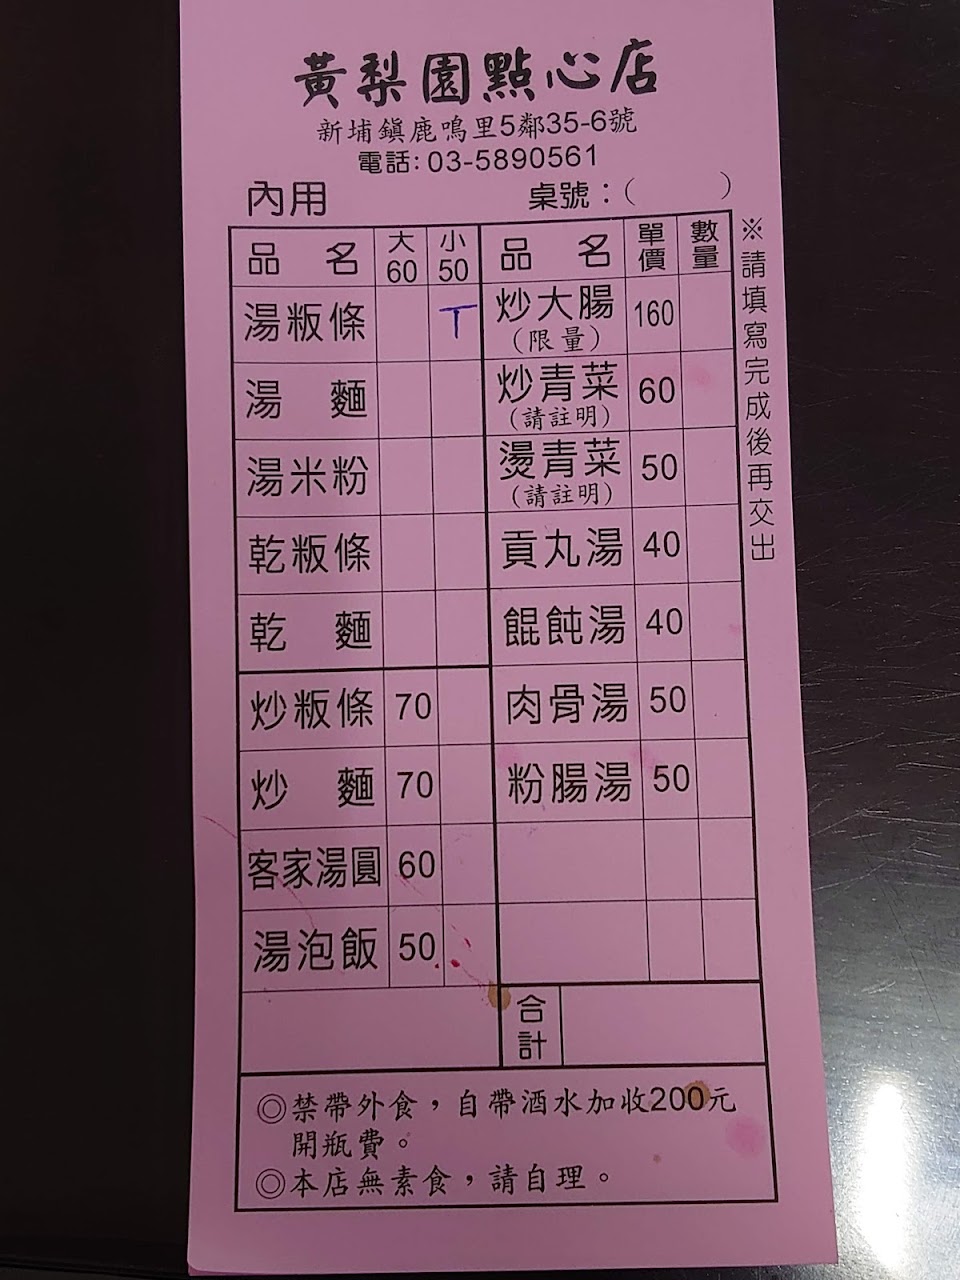 黃梨園點心店
新埔鎮鹿鳴里5鄰35-6號
電話:03-5890561
內用 桌號：（ ）
品 名 大60 小50
湯粄條 T
湯 麵
湯米粉
乾粄條
乾 麵
炒粄條 70
炒 麵 70
客家湯圓 60
湯泡飯 50
品 名 單價 數量
炒大腸 160
(限量)
炒青菜 60
(請註明)
燙青菜 50
(請註明)
貢丸湯 40
餛飩湯 40
肉骨湯 50
粉腸湯 50
合計
※請填寫完成後再交出
◎禁帶外食，自帶酒水加收200元
開瓶費。
◎本店無素食，請自理。